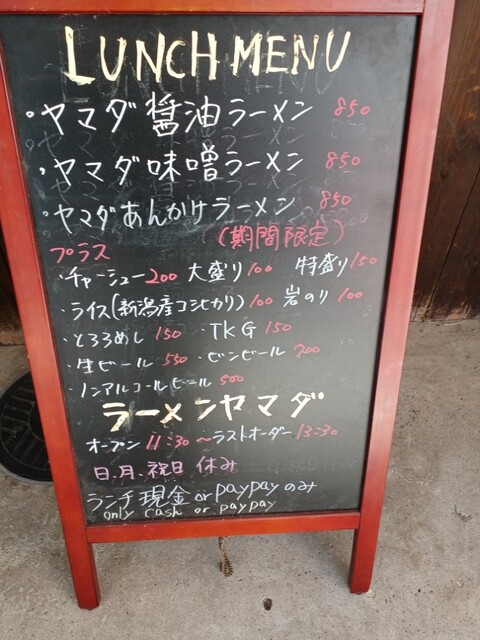 LUNCH MENU
・ヤマダ醤油ラーメン 850
・ヤマダ味噌ラーメン 850
・ヤマダあんかけラーメン 850
(期間限定)
プラス
・チャーシュー200 大盛り100 特盛り150
・ライス(新潟産コシヒカリ)100 岩のり100
・とろろめし 150 ・TKG 150
・生ビール 550 ・ビンビール 700
・ノンアルコールビール 500
ラーメンヤマダ
オープン11:30～ラストオーダー13:30
日.月.祝日 休み
ランチ現金or paypayのみ
only cash or paypay